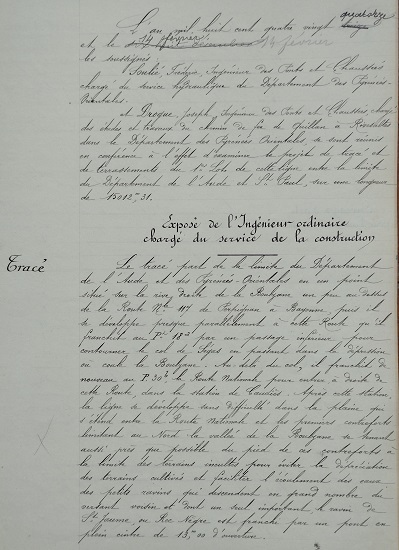 L'an mil huit cent quatre vingt quatorze
et le 14 février 14 février
les soussignés
Frédéric, Ingénieur des Ponts et Chaussées
chargé du service hydraulique du Département des Pyrénées-
Orientales.
et Drogue, Joseph, Ingénieur des Ponts et Chaussées, chargé
des études et travaux du chemin de fer de Quillan à Rivesaltes
dans le Département des Pyrénées Orientales, se sont réunis
en conférence à l'effet d'examiner le projet de tracé et
de terrassements du 1er Lot de cette ligne entre la limite
du Département de l'Aude et St Paul, sur une longueur
de 15012m31.
Exposé de l'Ingénieur ordinaire
chargé du service de la construction
Tracé
Le tracé part de la limite du Département
de l'Aude et des Pyrénées-Orientales en un point
situé sur la rive droite de la Boulzane un peu au dessus
de la Route Nle 117 de Perpignan à Bayonne puis il
se développe presque parallèlement à cette Route qu'il
franchit au P. 18 par un passage inférieur pour
contourner le col de en passant dans la dépression
où coule la Boulzane. Au delà du col, il franchit de
nouveau au P. la Route Nationale pour entrer à droite de
cette Route, dans la station de Caudiès. Après cette station,
la ligne se développe sans difficulté dans la plaine qui
s'étend entre la Route Nationale et les premiers contreforts
limitant au Nord la vallée de la Boulzane se tenant
aussi près que possible du pied de ces contreforts à
la limite des terrains incultes pour éviter la dépréciation
des terrains cultivés et faciliter l'écoulement des eaux
des petits ravins qui descendent en grand nombre du
versant voisin et dont un seul important le ravin de
St Jaume ou Rec Nègre est franchi par un pont en
plein cintre de 15,00 d'ouverture.